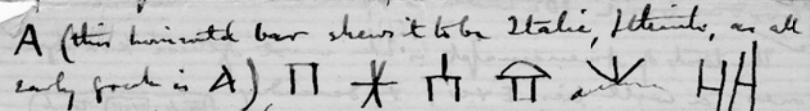 A (this horizontal bar shews it to be Italic, I think, as all
early Greek is A)